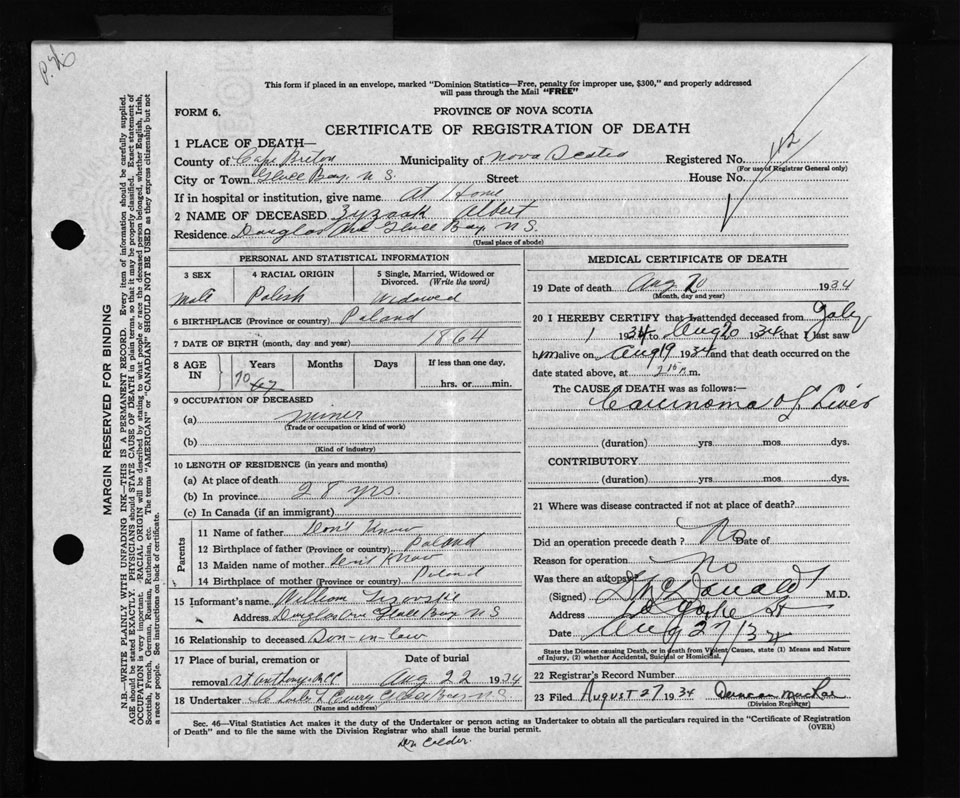 This form if placed in an envelope, marked "Dominion Statistics—Free, penalty for improper use, $300," and properly addressed
will pass through the Mail "FREE"
FORM 6.
PROVINCE OF NOVA SCOTIA
CERTIFICATE OF REGISTRATION OF DEATH
1 PLACE OF DEATH—
County of Cape Breton Municipality of Nova Scotia Registered No. 42
(For use of Registrar General only)
City or Town Glace Bay, N.S. Street House No.
If in hospital or institution, give name At Home
2 NAME OF DECEASED Zyzaak Albert
Residence Douglas Ave Glace Bay N.S.
(Usual place of abode)
PERSONAL AND STATISTICAL INFORMATION
3 SEX 4 RACIAL ORIGIN 5 Single, Married, Widowed or
Divorced. (Write the word)
Male Polish Widowed
6 BIRTHPLACE (Province or country) Poland
7 DATE OF BIRTH (month, day and year) 1864
8 AGE IN Years Months Days If less than one day,
70 67 hrs. or min.
9 OCCUPATION OF DECEASED
(a) miner
(Trade or occupation or kind of work)
(b)
(Kind of industry)
10 LENGTH OF RESIDENCE (in years and months)
(a) At place of death
(b) In province 28 yrs.
(c) In Canada (if an immigrant)
Parents
11 Name of father Don't Know
12 Birthplace of father (Province or country) Poland
13 Maiden name of mother Don't Know
14 Birthplace of mother (Province or country) Poland
15 Informant's name William
Address Douglas Ave Glace Bay N S
16 Relationship to deceased Son-in-law
17 Place of burial, cremation or Date of burial
removal St Anthony's Aug 22 1934
18 Undertaker Curry Glace Bay N.S.
(Name and address)
MEDICAL CERTIFICATE OF DEATH
19 Date of death Aug 20 1934
(Month, day and year)
20 I HEREBY CERTIFY that I attended deceased from July
1 1934 to Aug 20 1934 that I last saw
him alive on Aug 19 1934 and that death occurred on the
date stated above, at 2 m.
The CAUSE of DEATH was as follows:—
Carcinoma of Liver
(duration) yrs. mos. dys.
CONTRIBUTORY
(duration) yrs. mos. dys.
21 Where was disease contracted if not at place of death?
Did an operation precede death? No Date of
Reason for operation
Was there an autopsy? No
(Signed) McDonald M.D.
Address St
Date Aug 27/34
State the Disease causing Death, or in death from Violent Causes, state (1) Means and Nature
of Injury, (2) whether Accidental, Suicidal or Homicidal.
22 Registrar's Record Number
23 Filed August 27 1934 Duncan MacRae
(Division Registrar)
Sec. 46—Vital Statistics Act makes it the duty of the Undertaker or person acting as Undertaker to obtain all the particulars required in the "Certificate of Registration
of Death" and to file the same with the Division Registrar who shall issue the burial permit.
(OVER)
Calder
MARGIN RESERVED FOR BINDING
N.B.—WRITE PLAINLY WITH UNFADING INK—THIS IS A PERMANENT RECORD. Every item of information should be carefully supplied.
AGE should be stated EXACTLY. PHYSICIANS should STATE CAUSE OF DEATH in plain terms, so that it may be properly classified. Exact statement of
OCCUPATION is very important. RACIAL ORIGIN will be described by stating to what people or race the deceased person belonged, whether English, Irish,
Scottish, French, German, Russian, Ruthenian, etc. The terms "AMERICAN" or "CANADIAN" SHOULD NOT BE USED as they express citizenship but not
a race or people. See instructions on back of certificate.